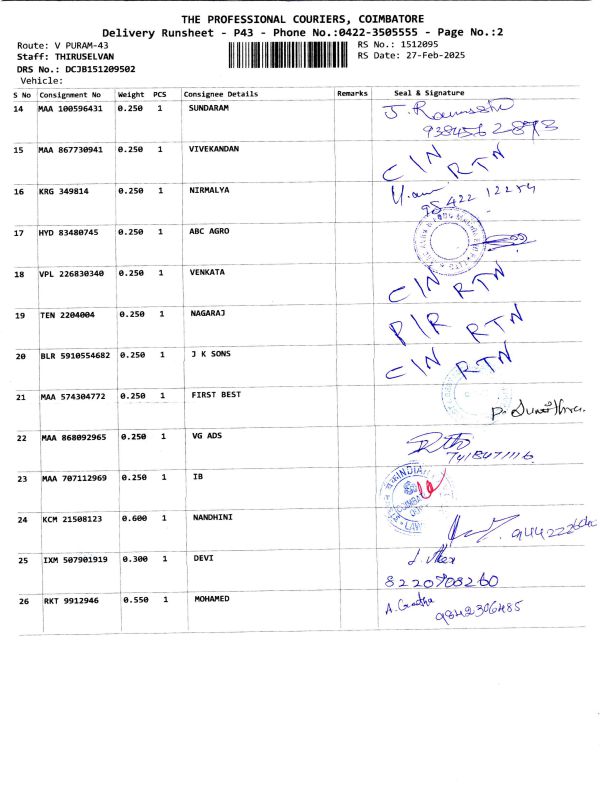 THE PROFESSIONAL COURIERS, COIMBATORE
Delivery Runsheet - P43 - Phone No.:0422-3505555 - Page No.:2
Route: V PURAM-43 RS No.: 1512095
Staff: THIRUSELVAN RS Date: 27-Feb-2025
DRS No.: DCJB151209502
Vehicle:
S No Consignment No Weight PCS Consignee Details Remarks Seal & Signature
14 MAA 100596431 0.250 1 SUNDARAM
9384562893
15 MAA 867730941 0.250 1 VIVEKANDAN C/N RTN
16 KRG 349814 0.250 1 NIRMALYA
17 HYD 83480745 0.250 1 ABC AGRO
18 VPL 226830340 0.250 1 VENKATA C/N RTN
19 TEN 2204004 0.250 1 NAGARAJ P/R RTN
20 BLR 5910554682 0.250 1 J K SONS C/N RTN
21 MAA 574304772 0.250 1 FIRST BEST
22 MAA 868092965 0.250 1 VG ADS
7418471116
23 MAA 707112969 0.250 1 IB
24 KCM 21508123 0.600 1 NANDHINI
25 IXM 507901919 0.300 1 DEVI
8220708260
26 RKT 9912946 0.550 1 MOHAMED A. Geetha
9842306485